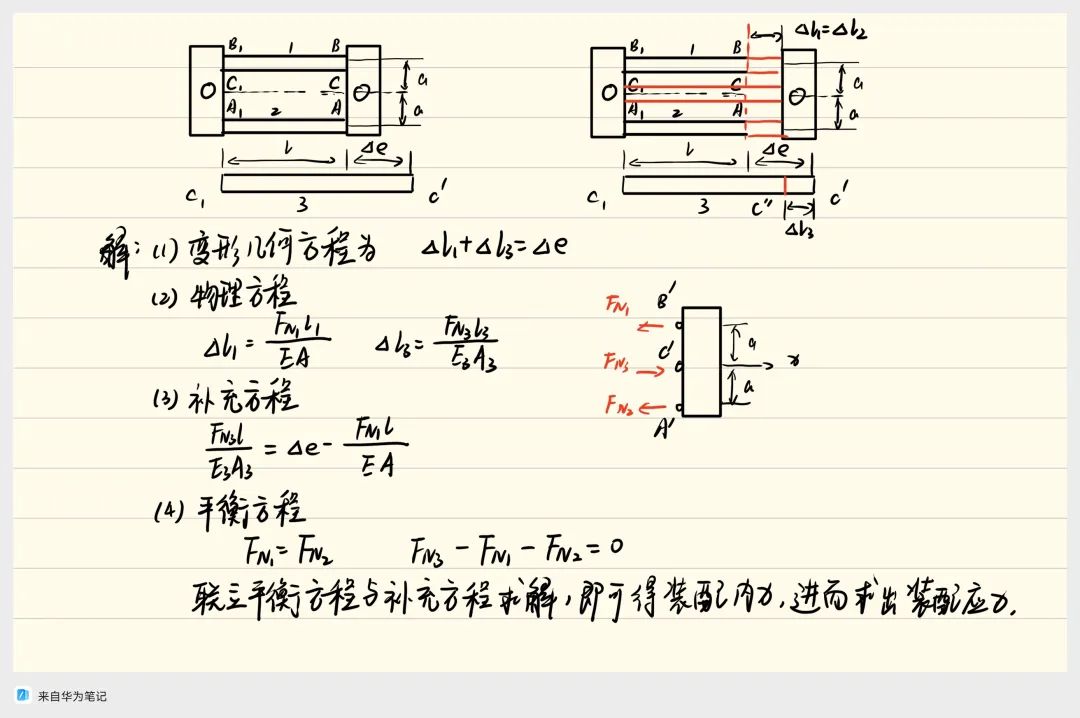 B₁ 1 B
C₁ C
A₁ 2 A
a
a
l Δe
C₁ 3 C'
Δl₁=Δl₂
B₁ 1 B
C₁ C
A₁ 2 A
a
a
l Δe
C₁ 3 C'' C'
Δl₃
解: (1) 变形几何方程为 Δl₁+Δl₃=Δe
(2) 物理方程
Δl₁ = F_N₁l₁/EA Δl₃ = F_N₃l₃/E₃A₃
(3) 补充方程
F_N₃l/E₃A₃ = Δe - F_N₁l/EA
F_N₁ B'
F_N₃ C' x
F_N₂ A'
a
a
(4) 平衡方程
F_N₁ = F_N₂ F_N₃ - F_N₁ - F_N₂ = 0
联立平衡方程与补充方程求解,即可得装配内力,进而求出装配应力.
来自华为笔记